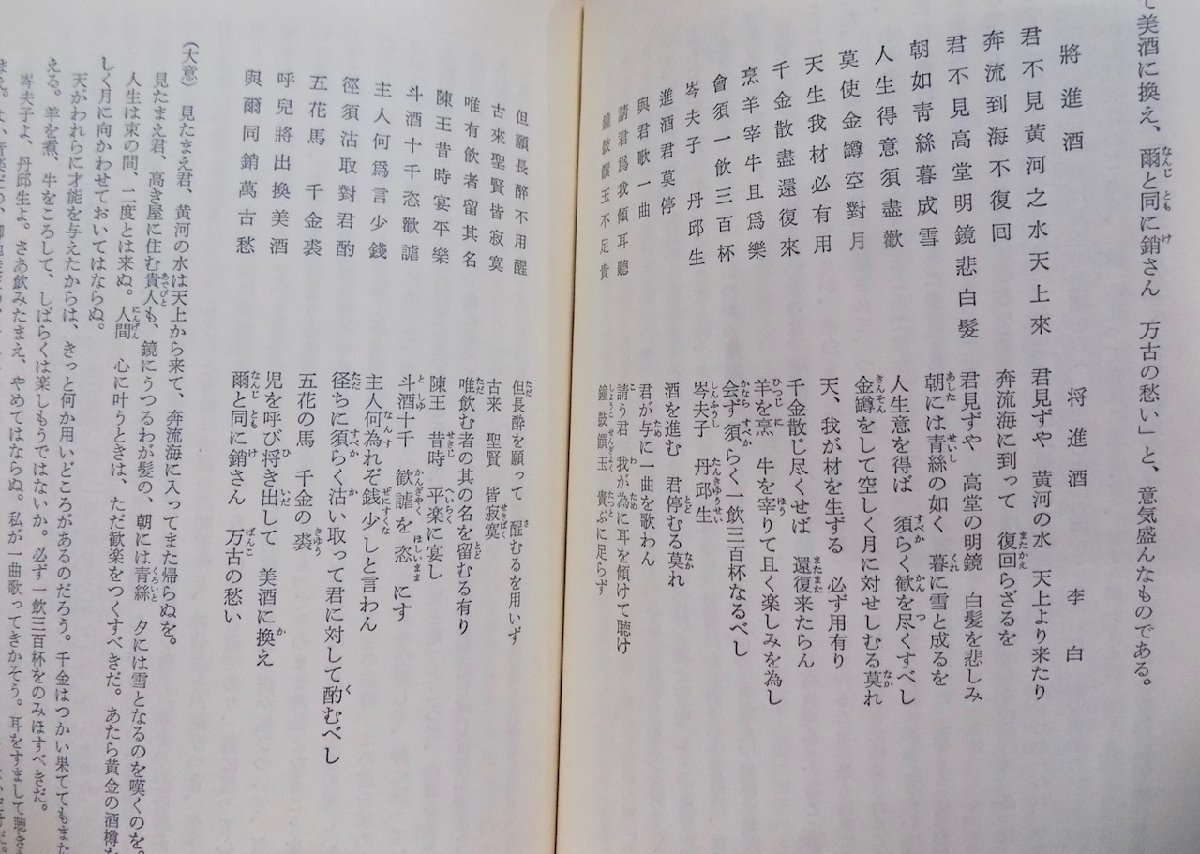 て美酒に換え、爾と同に銷さん　万古の愁い」と、意気盛んなものである。
將進酒
君不見黃河之水天上來
奔流到海不復回
君不見高堂明鏡悲白髮
朝如靑絲暮成雪
人生得意須盡歡
莫使金罇空對月
天生我材必有用
千金散盡還復來
烹羊宰牛且爲樂
會須一飲三百杯
岑夫子　丹邱生
進酒君莫停
與君歌一曲
請君爲我傾耳聽
鐘鼓饌玉不足貴
将進酒　李白
君見ずや　黄河の水　天上より来たり
奔流海に到って　復回らざるを
君見ずや　高堂の明鏡　白髪を悲しみ
朝には青絲の如く　暮に雪と成るを
人生意を得ば　須らく歓を尽くすべし
金罇をして空しく月に対せしむる莫れ
天、我が材を生ずる　必ず用有り
千金散じ尽くせば　還復来たらん
羊を烹　牛を宰りて且く楽しみを為し
会ず須らく一飲三百杯なるべし
岑夫子　丹邱生
酒を進む　君停むる莫れ
君が与に一曲を歌わん
請う君　我が為に耳を傾けて聴け
鐘鼓饌玉　貴ぶに足らず
但願長醉不用醒
古來聖賢皆寂寞
唯有飲者留其名
陳王昔時宴平樂
斗酒十千恣歡謔
主人何爲言少錢
徑須沽取對君酌
五花馬　千金裘
呼兒將出換美酒
與爾同銷萬古愁
但長酔を願って　醒むるを用いず
古来　聖賢　皆寂寞
唯飲む者の其の名を留むる有り
陳王　昔時　平楽に宴し
斗酒十千　歓謔を恣にす
主人何為れぞ銭少しと言わん
径ちに須らく沽い取って君に対して酌むべし
五花の馬　千金の裘
児を呼び将き出して　美酒に換え
爾と同に銷さん　万古の愁い
（大意）　見たまえ君、黄河の水は天上から来て、奔流海に入ってまた帰らぬを。
見たまえ君、高き屋に住む貴人も、鏡にうつるわが髪の、朝には青絲　夕には雪となるのを嘆くのを。
人生は束の間、二度とは来ぬ。人間　心に叶うときは、ただ歓楽をつくすべきだ。あたら黄金の酒樽を
しく月に向かわせておいてはならぬ。
天がわれらに才能を与えたからは、きっと何か用いどころがあるのだろう。千金はつかい果ててもまた
える。羊を煮、牛をころして、しばらくは楽しもうではないか。必ず一飲三百杯をのみほすべきだ。
岑夫子よ、丹邱生よ。さあ飲みたまえ、やめてはならぬ。私が一曲歌ってきかそう。耳をすまして聴き